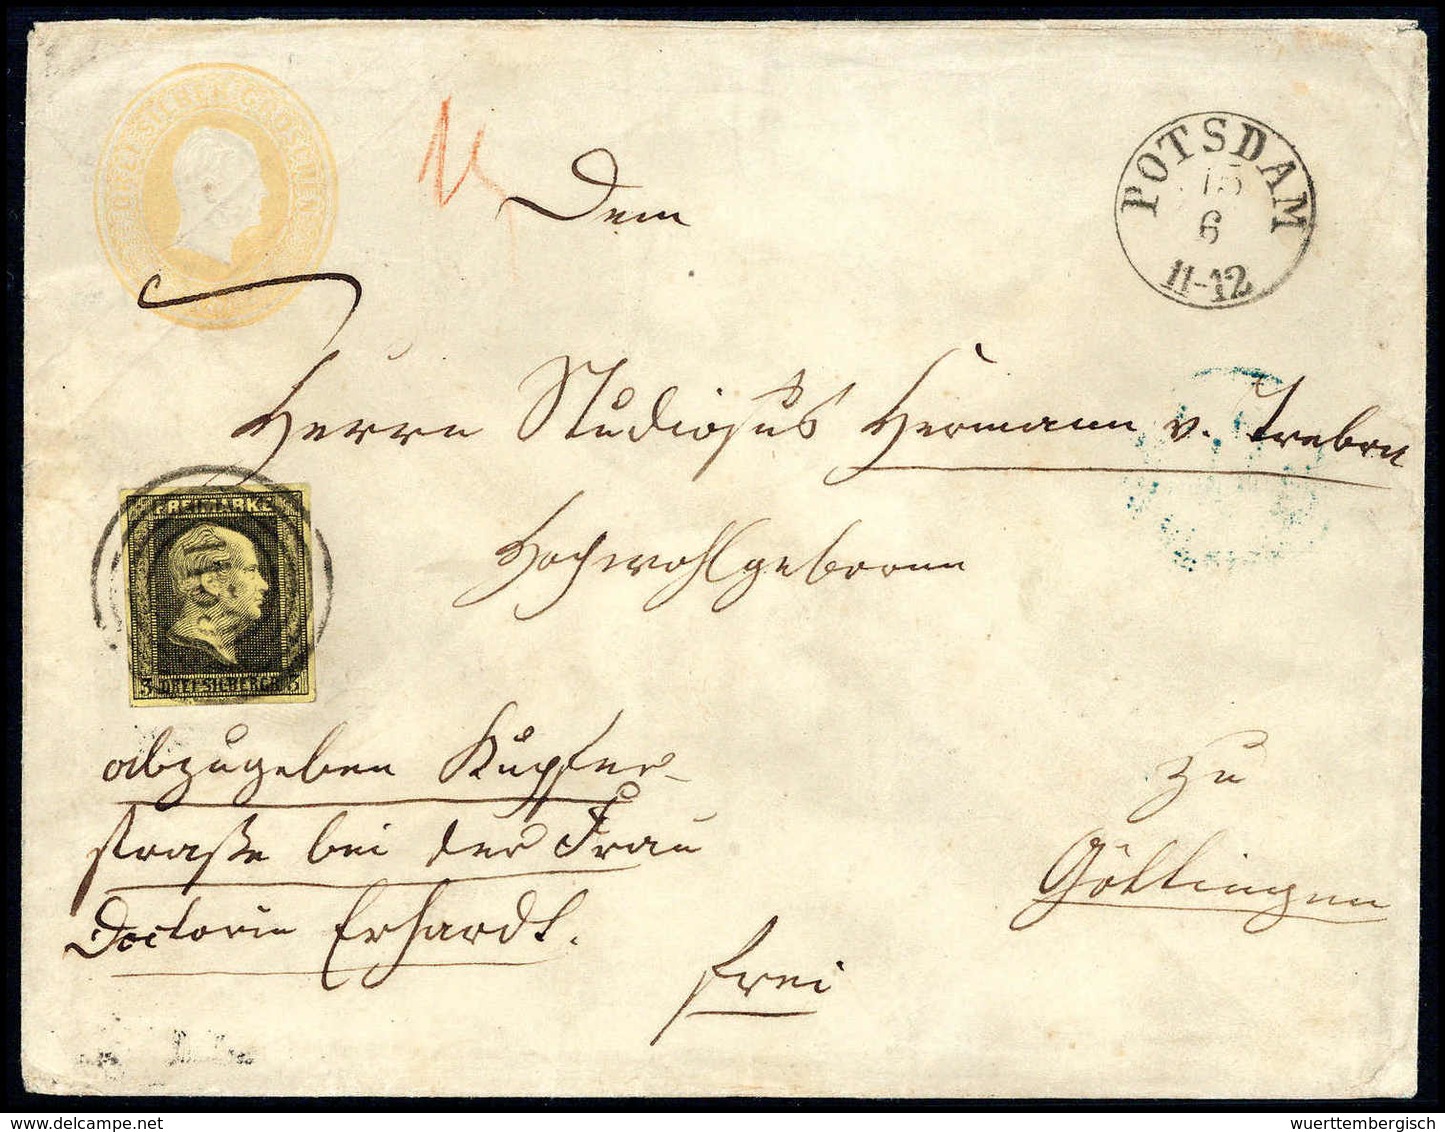 DREI SILBERGROSCHEN
POTSDAM
15
6
11-12
Dem
Herrn Studiosus Hermann v. Treben
Hochwohlgeboren
FREIMARKE
3 DREI SILBERGR. 3
abzugeben Kupfer-
straße bei der Frau
Doctorin Erhardt.
zu
Göttingen
frei
wuerttembergisch